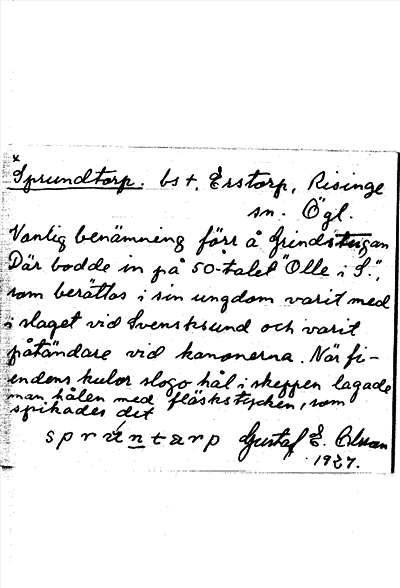 * Sprundtorp. bst. Erstorp, Risinge
sn. Ögl.
Vanlig benämning förr å Grindstugan
Där bodde in på 50-talet "Olle i S.",
som berättas i sin ungdom varit med
i slaget vid Svensksund och varit
påtändare vid kanonerna. När fi-
endens kulor slogo hål i skeppen lagade
man hålen med fläskstycken, som
spikades dit
sprúntarp Gustaf E. Olsson
1927.